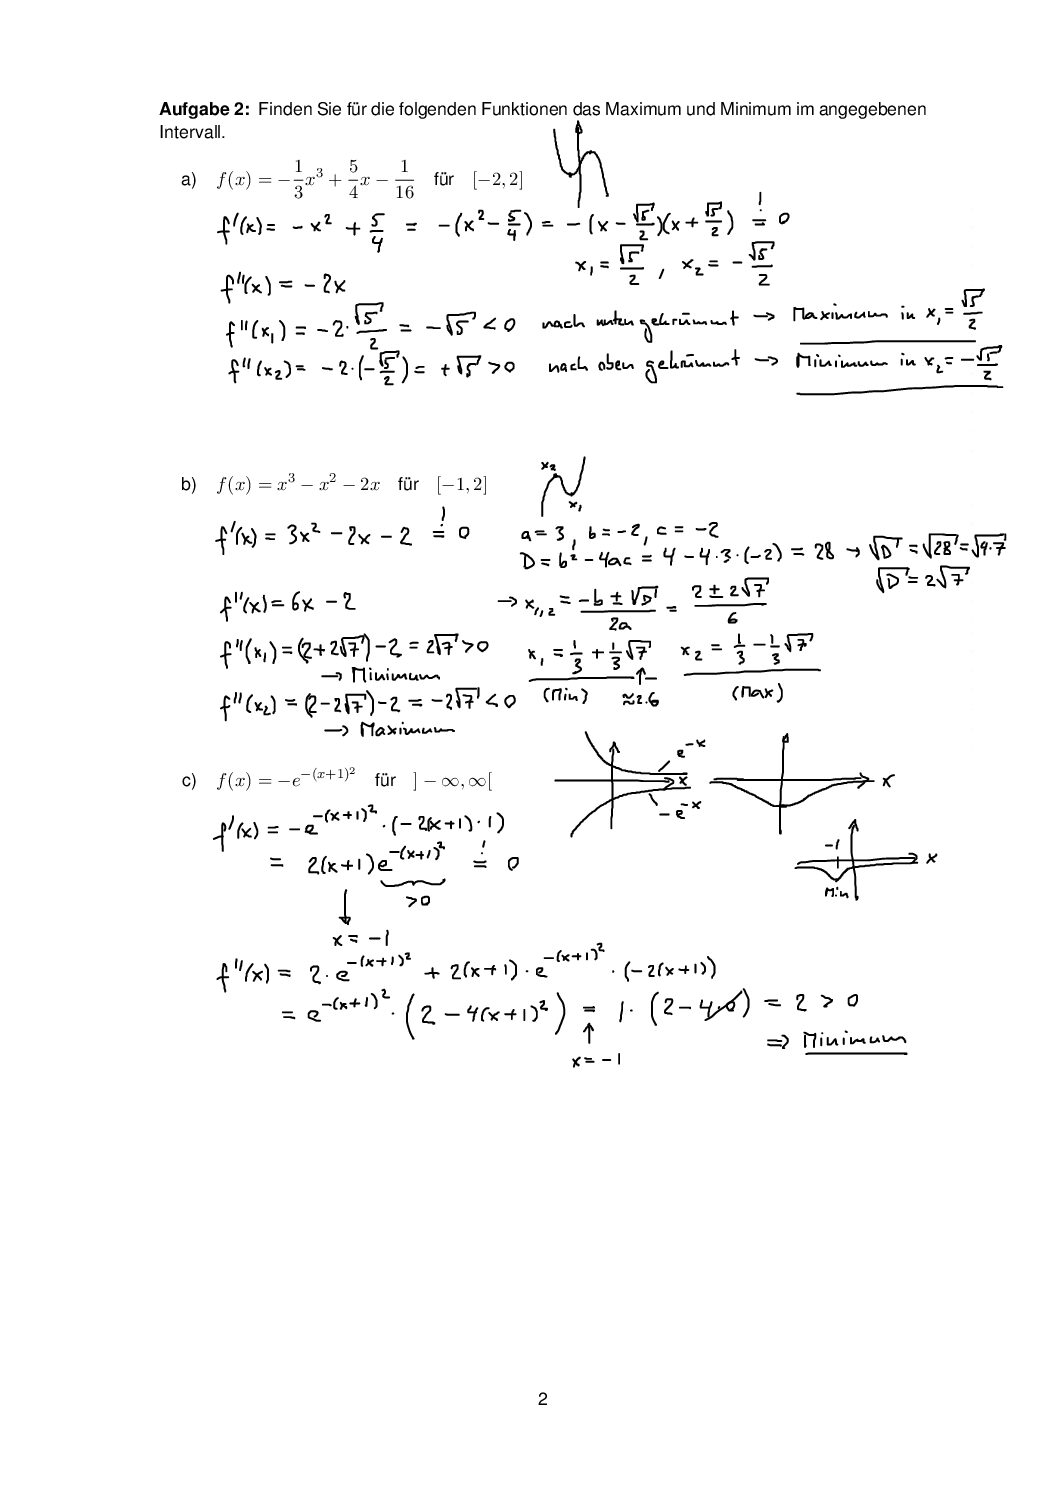 Aufgabe 2: Finden Sie für die folgenden Funktionen das Maximum und Minimum im angegebenen
Intervall.
a) f(x) = −1/3 x³ + 5/4 x − 1/16 für [−2, 2]
f'(x) = −x² + 5/4 = −(x² − 5/4) = −(x − √5/2)(x + √5/2) =! 0
x₁ = √5/2 , x₂ = −√5/2
f''(x) = −2x
f''(x₁) = −2·√5/2 = −√5 < 0 nach unten gekrümmt → Maximum in x₁ = √5/2
f''(x₂) = −2·(−√5/2) = +√5 > 0 nach oben gekrümmt → Minimum in x₂ = −√5/2
b) f(x) = x³ − x² − 2x für [−1, 2]
x₂
x₁
f'(x) = 3x² − 2x − 2 =! 0 a = 3, b = −2, c = −2
D = b² − 4ac = 4 − 4·3·(−2) = 28 → √D = √28 = √4·7
√D = 2√7
f''(x) = 6x − 2 → x₁,₂ = (−b ± √D)/2a = (2 ± 2√7)/6
f''(x₁) = (2 + 2√7) − 2 = 2√7 > 0 x₁ = 1/3 + 1/3 √7 x₂ = 1/3 − 1/3 √7
→ Minimum (Min) ↑ ≈2.6 (Max)
f''(x₂) = (2 − 2√7) − 2 = −2√7 < 0
→ Maximum
c) f(x) = −e^−(x+1)² für ]−∞, ∞[
e^−x
x
−e^−x
x
f'(x) = −e^−(x+1)² · (−2(x+1)·1)
= 2(x+1)e^−(x+1)² =! 0
−1
x
Min
>0
↓
x = −1
f''(x) = 2·e^−(x+1)² + 2(x+1)·e^−(x+1)² · (−2(x+1))
= e^−(x+1)² · (2 − 4(x+1)²) = 1·(2 − 4·0) = 2 > 0
↑
x = −1
⇒ Minimum
2